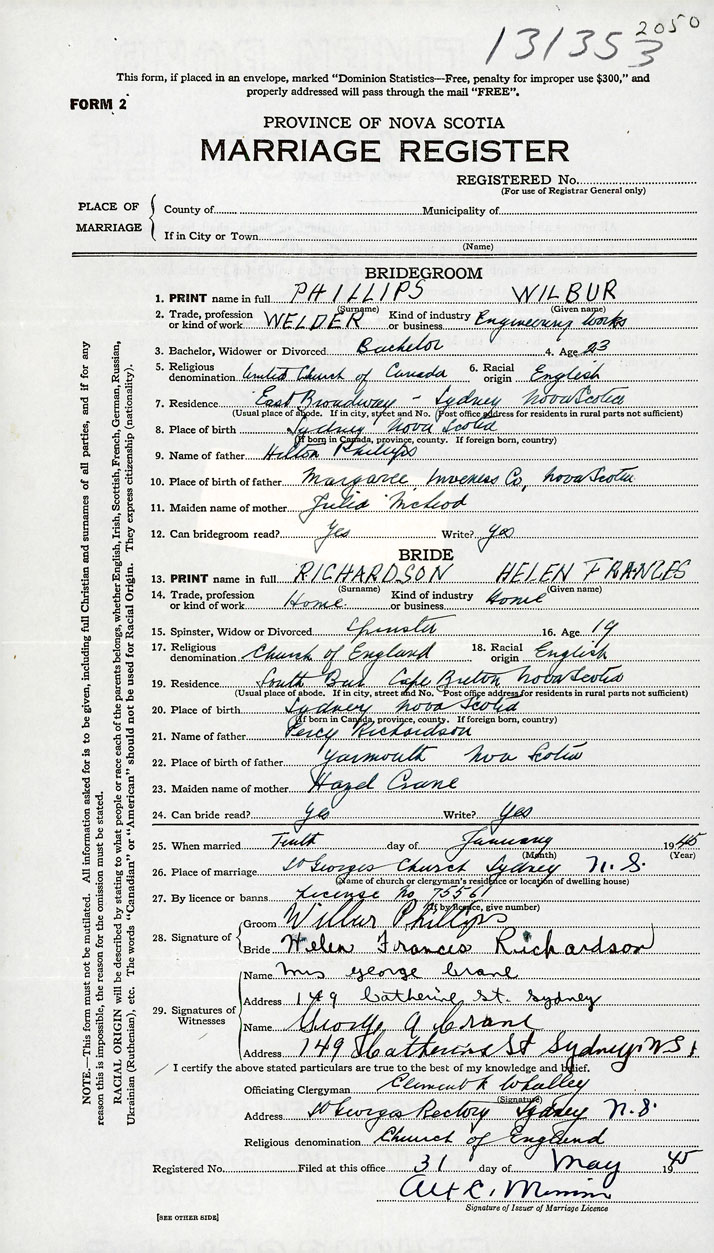 2050
131353
This form, if placed in an envelope, marked "Dominion Statistics—Free, penalty for improper use $300," and
properly addressed will pass through the mail "FREE".
FORM 2
PROVINCE OF NOVA SCOTIA
MARRIAGE REGISTER
REGISTERED No.
(For use of Registrar General only)
PLACE OF MARRIAGE
County of Municipality of
If in City or Town
(Name)
BRIDEGROOM
1. PRINT name in full PHILLIPS WILBUR
(Surname) (Given name)
2. Trade, profession or kind of work WELDER Kind of industry or business Engineering Works
3. Bachelor, Widower or Divorced Bachelor 4. Age 23
5. Religious denomination United Church of Canada 6. Racial origin English
7. Residence East Broadway - Sydney Nova Scotia
(Usual place of abode. If in city, street and No. Post office address for residents in rural parts not sufficient)
8. Place of birth Sydney Nova Scotia
(If born in Canada, province, county. If foreign born, country)
9. Name of father Hilton Phillips
10. Place of birth of father Margaree Inverness Co, Nova Scotia
11. Maiden name of mother Julia McLeod
12. Can bridegroom read? Yes Write? Yes
BRIDE
13. PRINT name in full RICHARDSON HELEN FRANCES
(Surname) (Given name)
14. Trade, profession or kind of work Home Kind of industry or business Home
15. Spinster, Widow or Divorced Spinster 16. Age 19
17. Religious denomination Church of England 18. Racial origin English
19. Residence South Bar Cape Breton Nova Scotia
(Usual place of abode. If in city, street and No. Post office address for residents in rural parts not sufficient)
20. Place of birth Sydney Nova Scotia
(If born in Canada, province, county. If foreign born, country)
21. Name of father Percy Richardson
22. Place of birth of father Yarmouth Nova Scotia
23. Maiden name of mother Hazel Crane
24. Can bride read? Yes Write? Yes
25. When married Tenth day of January 1945
(Month) (Year)
26. Place of marriage St Georges Church Sydney N.S.
(Name of church or clergyman's residence or location of dwelling house)
27. By licence or banns License No 75561
(If by licence, give number)
28. Signature of
Groom Wilbur Phillips
Bride Helen Frances Richardson
29. Signatures of Witnesses
Name Mrs George Crane
Address 149 Catherine St. Sydney
Name George A Crane
Address 149 Catherine St Sydney N.S.
I certify the above stated particulars are true to the best of my knowledge and belief.
Officiating Clergyman Clement Whalley
(Signature)
Address St Georges Rectory Sydney N.S.
Religious denomination Church of England
Registered No. Filed at this office 31 day of May 1945
Signature of Issuer of Marriage Licence
[SEE OTHER SIDE]
NOTE.—This form must not be mutilated. All information asked for is to be given, including full Christian and surnames of all parties, and if for any
reason this is impossible, the reason for the omission must be stated.
RACIAL ORIGIN will be described by stating to what people or race each of the parents belongs, whether English, Irish, Scottish, French, German, Russian,
Ukrainian (Ruthenian), etc. The words "Canadian" or "American" should not be used for Racial Origin. They express citizenship (nationality).